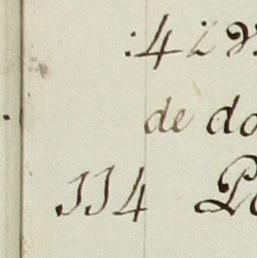 :4
de do
114 Po